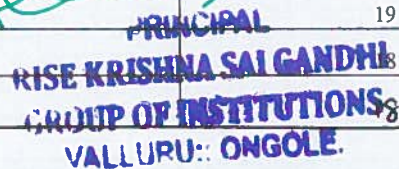 PRINCIPAL 19
RISE KRISHNA SAI GANDHI 8
GROUP OF INSTITUTIONS 8
VALLURU:: ONGOLE.